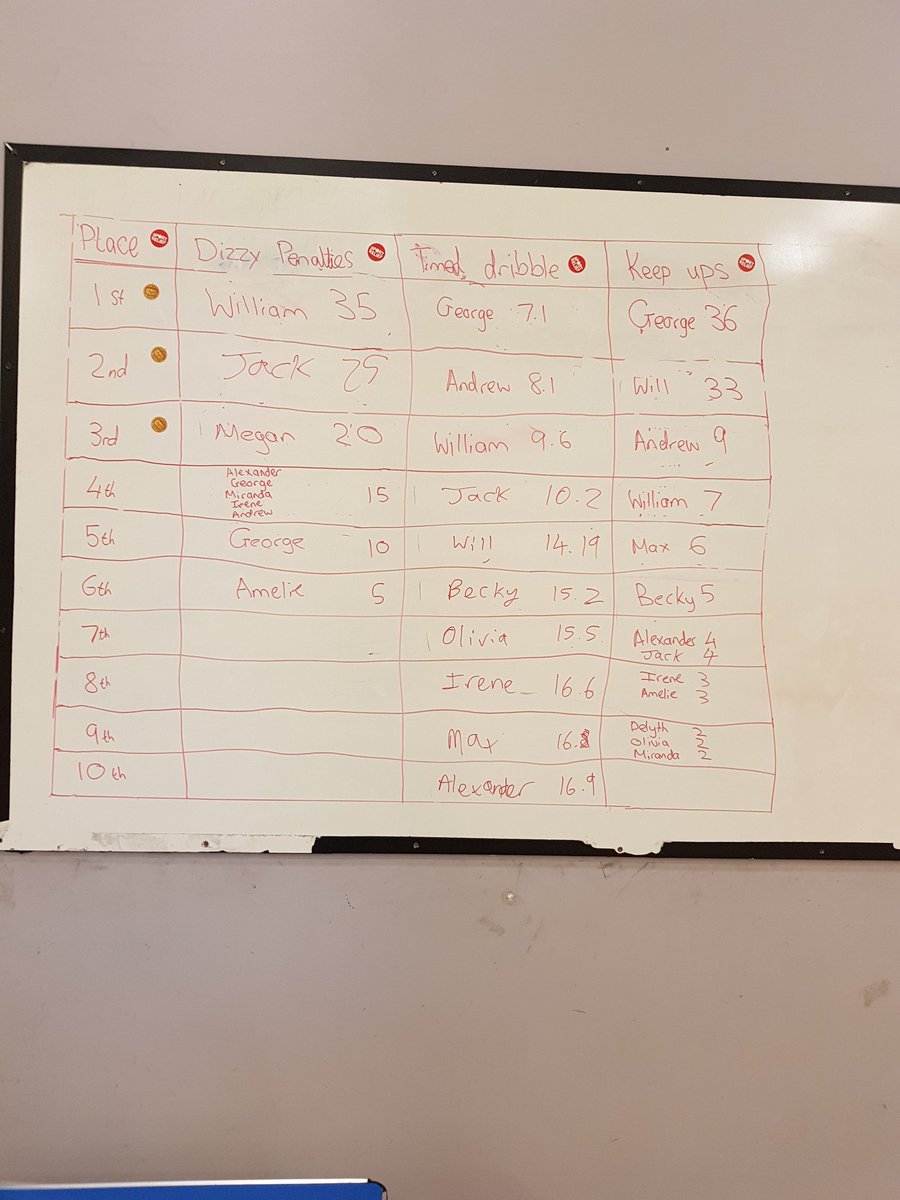 Place Dizzy Penalties Timed dribble Keep ups
1st William 35 George 7.1 George 36
2nd Jack 25 Andrew 8.1 Will 33
3rd Megan 20 William 9.6 Andrew 9
4th Alexander
George
Miranda 15 Jack 10.2 William 7
Irene
Andrew
5th George 10 Will 14.19 Max 6
6th Amelie 5 Becky 15.2 Becky 5
7th Olivia 15.5 Alexander 4
Jack 4
8th Irene 16.6 Irene 3
Amelie 3
9th Max 16.8 Delyth 2
Olivia 2
Miranda 2
10th Alexander 16.9